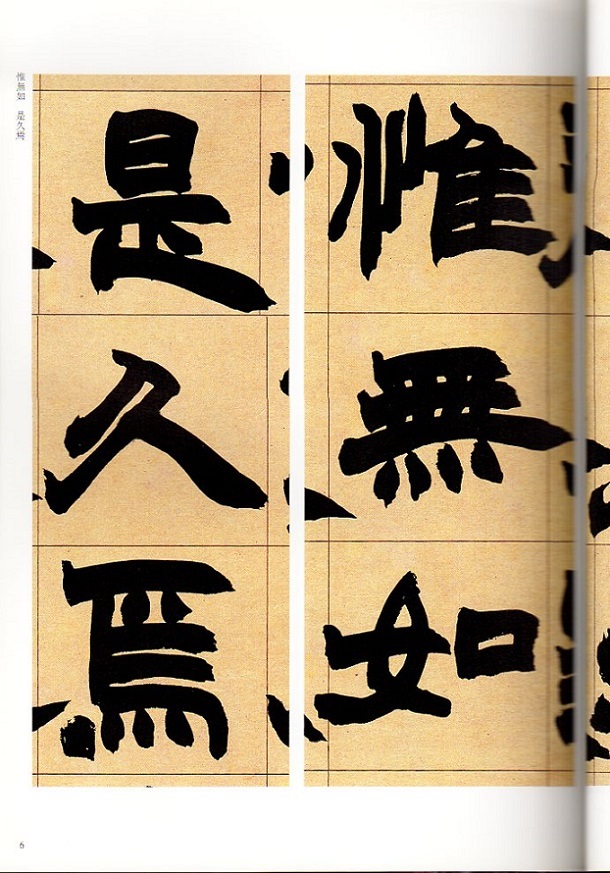 惟無如
是久焉
惟無如 是久焉
6